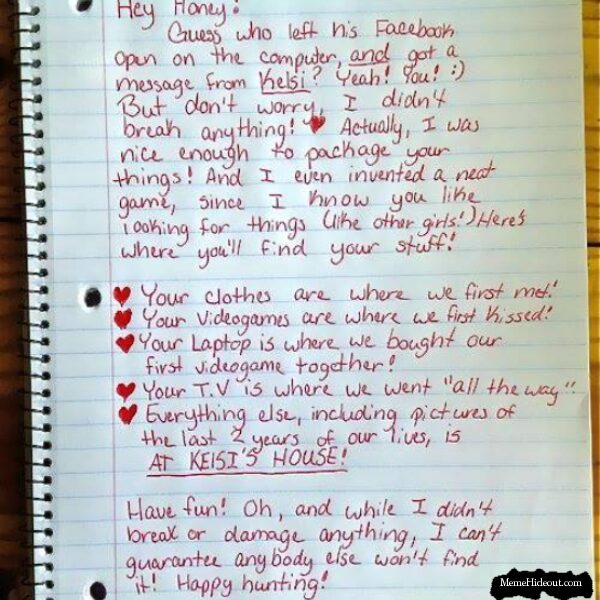 Hey Honey!
Guess who left his Facebook
open on the computer, and got a
message from Kelsi? Yeah! You! :)
But don't worry, I didn't
break anything! ♥ Actually, I was
nice enough to package your
things! And I even invented a neat
game, since I know you like
looking for things (like other girls!) Here's
where you'll find your stuff!
♥ Your clothes are where we first met!
♥ Your videogames are where we first kissed!
♥ Your Laptop is where we bought our
first videogame together!
♥ Your T.V is where we went "all the way"!
♥ Everything else, including pictures of
the last 2 years of our lives, is
AT KELSI'S HOUSE!
Have fun! Oh, and while I didn't
break or damage anything, I can't
guarantee anybody else won't find
it! Happy hunting!
MemeHideout.com